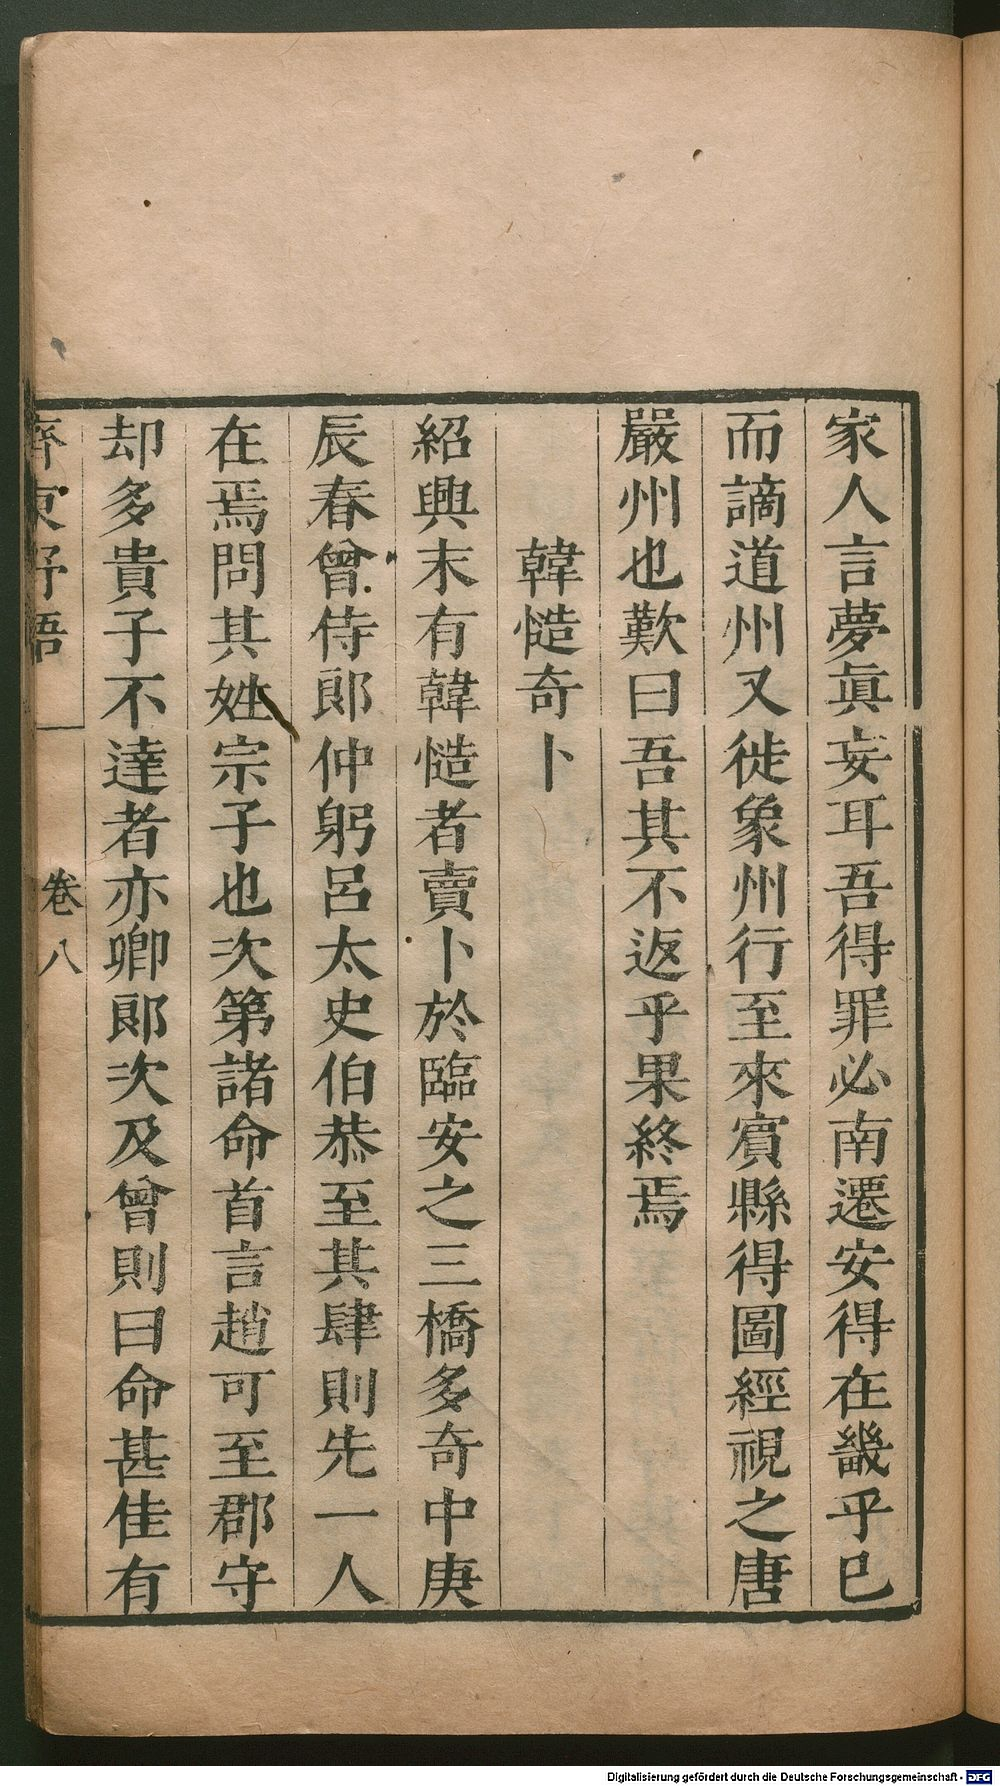 家人言夢眞妄耳吾得罪必南遷安得在畿乎巳
而謫道州又徙象州行至來賓縣得圖經視之唐
嚴州也歎曰吾其不返乎果終焉
韓慥奇卜
紹興末有韓慥者賣卜於臨安之三橋多奇中庚
辰春曾侍郞仲躬呂太史伯恭至其肆則先一人
在焉問其姓宗子也次第諸命首言趙可至郡守
却多貴子不達者亦卿郞次及曾則曰命甚佳有
齊東野語 卷八
Digitalisierung gefördert durch die Deutsche Forschungsgemeinschaft - DFG